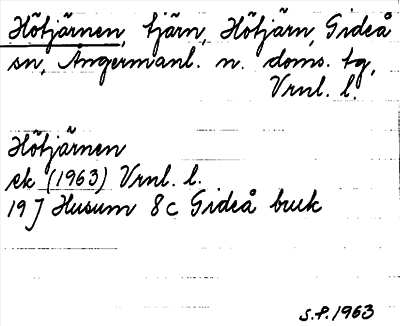 Hötjärnen, tjärn, Hötjärn, Gideå
sn, Ångermanl. n. doms. tg,
Vrnl. l.
Hötjärnen
ek (1963) Vrnl. l.
19 J Husum 8c Gideå bruk
S.P. 1963